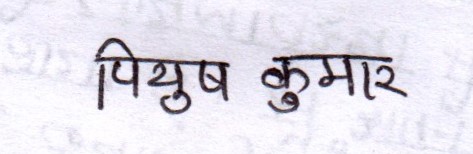 पियुष कुमार